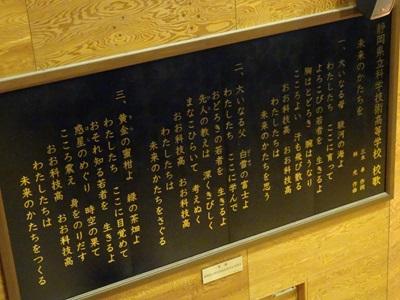 静岡県立科学技術高等学校 校歌
未来のかたちを
一、大いなる母 駿河の海よ
わたしたち ここに育って
よろこびの若者を 生きるよ
胸はとどろく 鋼となり
こころよい 汗も飛び散る
おお科技高 おお科技高
わたしたちは
未来のかたちを思う
二、大いなる父 白雪の富士よ
わたしたち ここに学んで
おどろきの若者を 生きるよ
先人の教えは 深くきびしく
まなこひらいて 考えぬく
おお科技高 おお科技高
わたしたちは
未来のかたちをさぐる
三、黄金の蜜柑よ 緑の茶畑よ
わたしたち ここに目覚めて
おそれ知る若者を 生きるよ
惑星のめぐり 時空の果て
こころ震え 身をのりだす
おお科技高 おお科技高
わたしたちは
未来のかたちをつくる